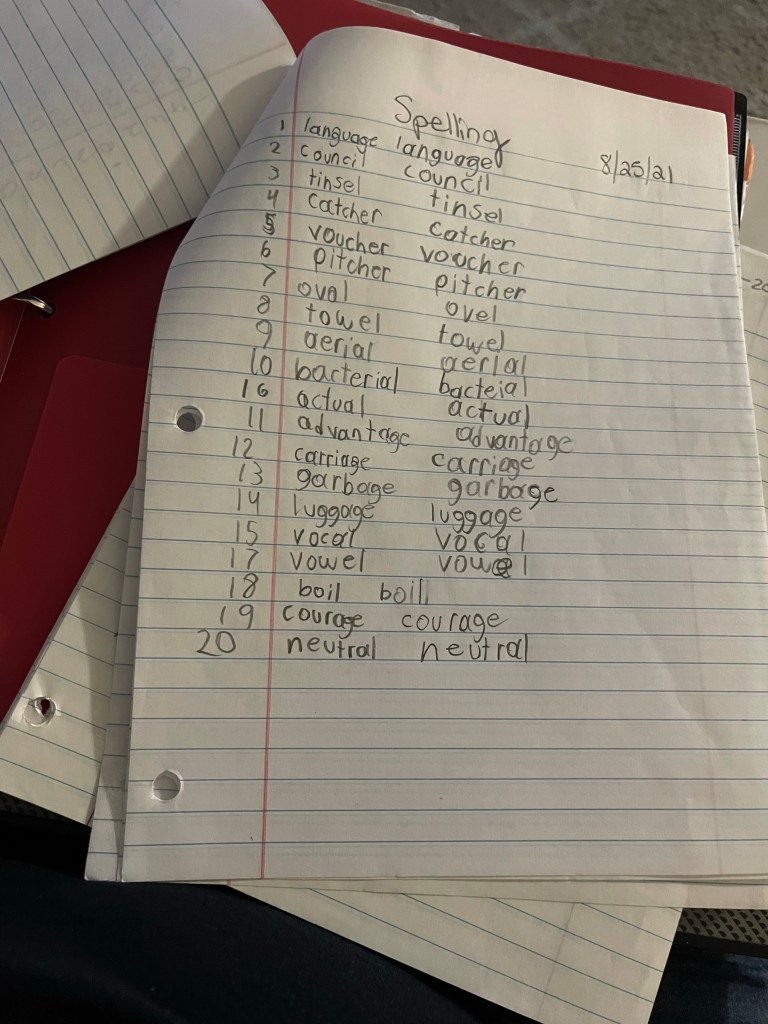 Spelling
8/25/21
1 language language
2 council council
3 tinsel tinsel
4 catcher catcher
5 voucher voucher
6 pitcher pitcher
7 oval ovel
8 towel towel
9 aerial aerial
10 bacterial bacteial
16 actual actual
11 advantage advantage
12 carriage carriage
13 garbage garbage
14 luggage luggage
15 vocal vocal
17 vowel vowel
18 boil boil
19 courage courage
20 neutral neutral